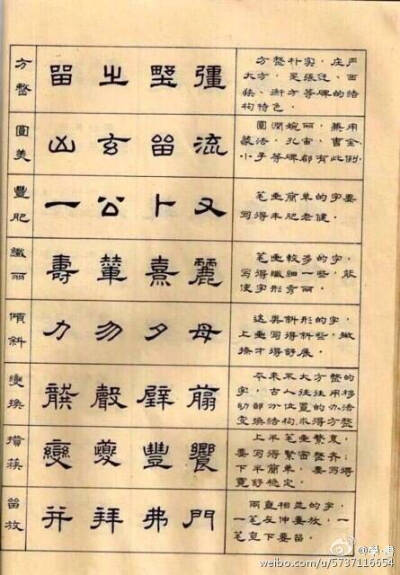 方整
留 之 堅 彊
方整朴实，庄严
大方，是张迁、西
狭、衡方等碑的结
构特色。
圓美
凶 玄 留 流
圆润婉丽，兼用
篆法，孔宙、曹全
小子等碑都有此例
豐肥
一 公 卜 又
笔画简单的字要
写得丰肥老健。
纖丽
壽 葦 熹 麗
笔画较多的字，
写得纤细一些，能
使字形秀丽。
傾斜
力 勿 夕 母
这类斜形的字，
上画写得斜些，撇
捺才得舒展。
變换
聲 壁
本来不大方整的
字，古人往往用移
动部分位置的办法
变换结构求得方整
變 夔 豐 饗
上半笔画繁复，
要写得紧密整齐；
下半简单，要写得
宽舒稳定。
留放
并 拜 弗 門
兩直相并的字，
一笔左伸要放，一
笔直下要留。
weibo.com/u/5737116654